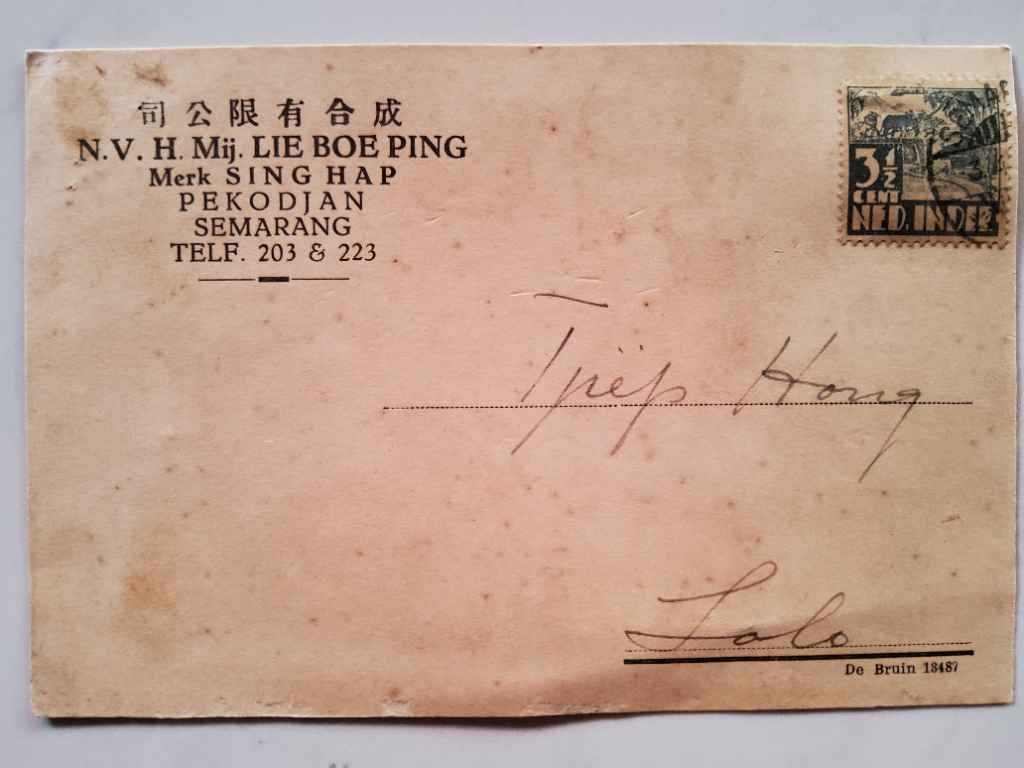 司公限有合成
N.V. H. Mij. LIE BOE PING
Merk SING HAP
PEKODJAN
SEMARANG
TELF. 203 & 223
3½
CENT
NED. INDIE
Tjiëp Hong
Solo
De Bruin 13487